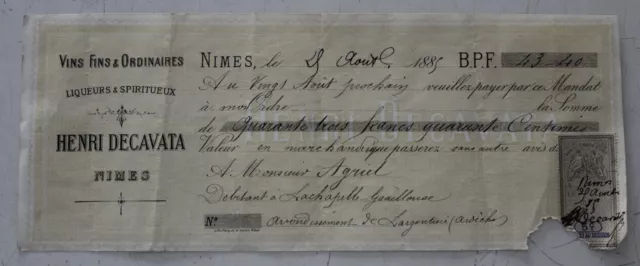 VINS FINS & ORDINAIRES
LIQUEURS & SPIRITUEUX
HENRI DECAVATA
NIMES
NIMES, le Août 1885 B.P.F. 43-40
Au Vingt Août prochain veuillez payer par ce Mandat
à mon Ordre la Somme
de Quarante trois francs quarante Centimes
Valeur en marchandise que passerez sans autre avis de
A Monsieur Agriel
Debitant à Lachapelle Graillouse
No arrondissement de Largentière (Ardèche)
Nimes